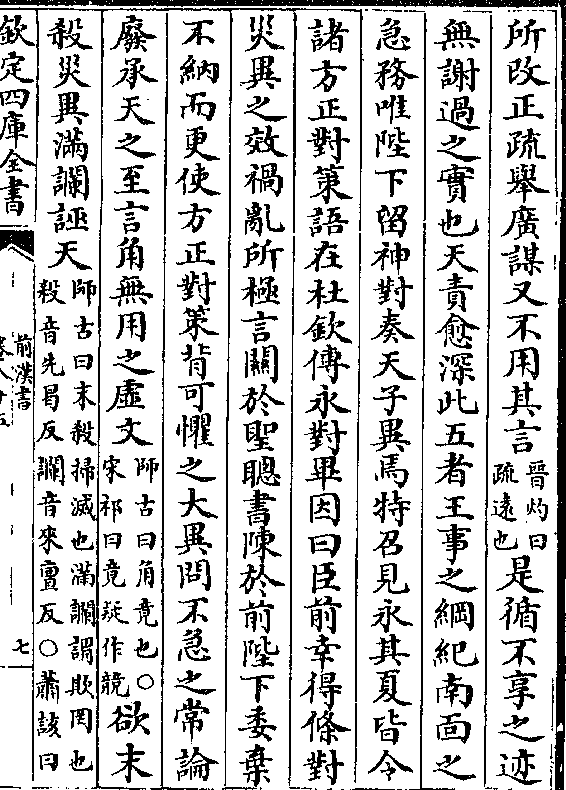 所改正疏舉廣謀又不用其言晉灼曰疏遠也是循不享之迹
無謝過之實也天責愈深此五者王事之綱紀南面之
急務唯陛下留神對奏天子異焉特召見永其夏皆令
諸方正對策語在杜欽傳永對畢因曰臣前幸得條對
災異之效禍亂所極言關於聖聰書陳於前陛下委棄
不納而更使方正對策背可懼之大異問不急之常論
廢承天之至言角無用之虛文師古曰角竟也○宋祁曰竟疑作競欲末
殺災異滿讕誣天師古曰末殺掃滅也滿讕謂欺罔也殺音先曷反讕音來亶反○蕭該曰
欽定四庫全書
前漢書
七